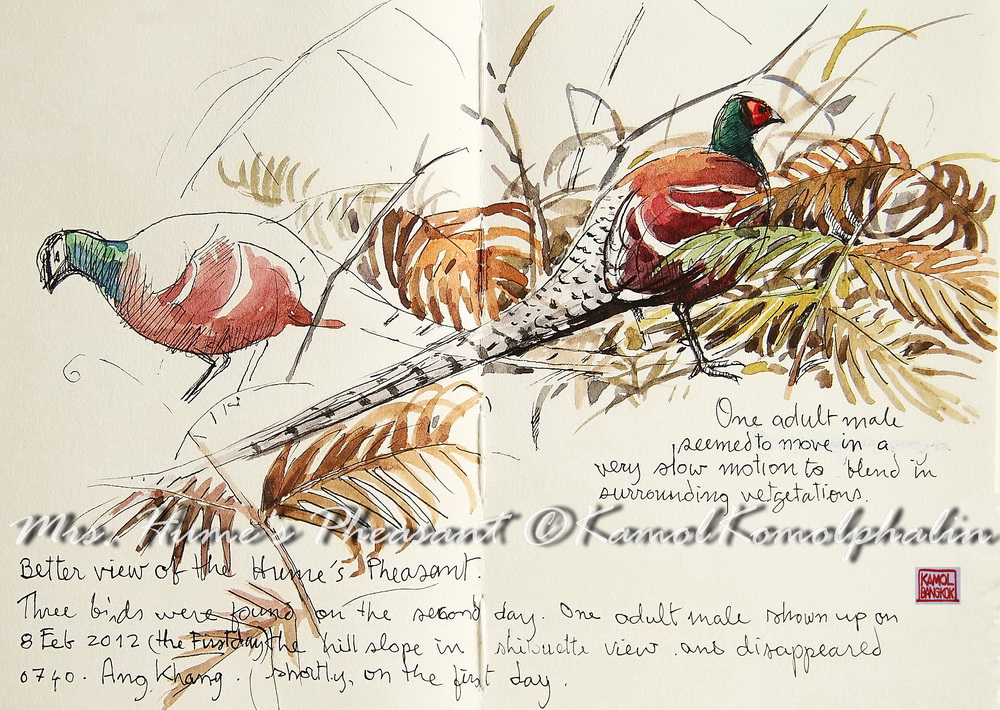 One adult male
seemed to move in a
very slow motion to blend in
surrounding vetgetations.
Mrs. Hume's Pheasant ©KamolKomolphalin
KAMOL
BANGKOK
Better view of the Hume's Pheasant.
Three birds were found on the second day. One adult male shown up on
8 Feb 2012 (the First day) the hill slope in shilouette view and disappeared
0740. Ang Khang. shortly, on the first day.